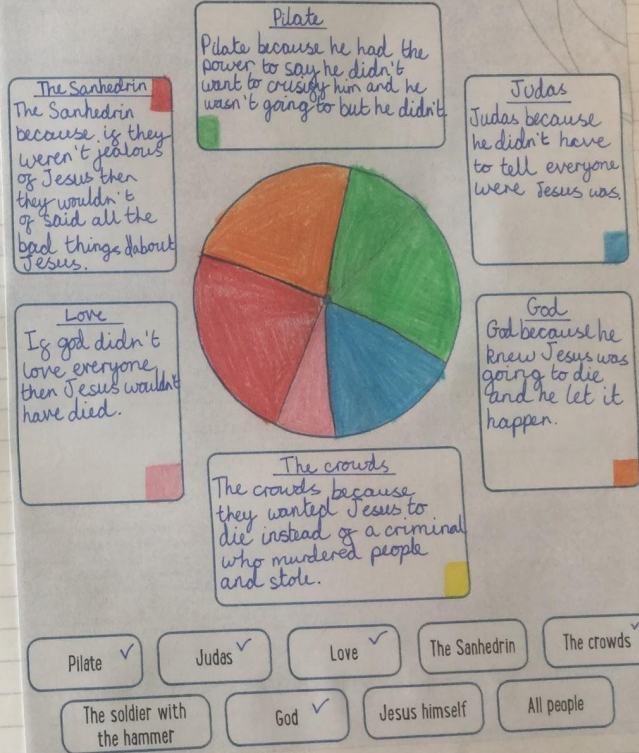 Pilate
Pilate because he had the
power to say he didn't
want to crusify him and he
wasn't going to but he didn't.
The Sanhedrin
The Sanhedrin
because if they
weren't jealous
of Jesus then
they wouldn't
of said all the
bad things about
Jesus.
Judas
Judas because
he didn't have
to tell everyone
were Jesus was.
Love
If god didn't
love everyone
then Jesus wouldn't
have died.
God
God because he
knew Jesus was
going to die
and he let it
happen.
The crowds
The crowds because
they wanted Jesus to
die instead of a criminal
who murdered people
and stole.
Pilate
Judas
Love
The Sanhedrin
The crowds
The soldier with
the hammer
God
Jesus himself
All people